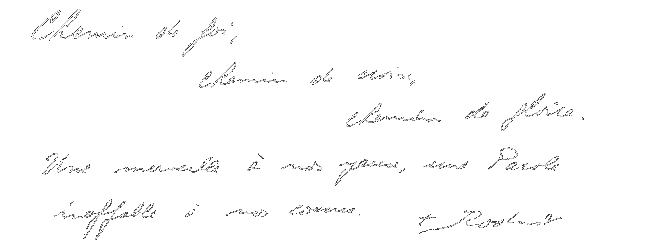 Chemin de foi,
chemin de croix,
chemin de gloire.
Une merveille à nos yeux, une Parole
ineffable à nos coeurs. +